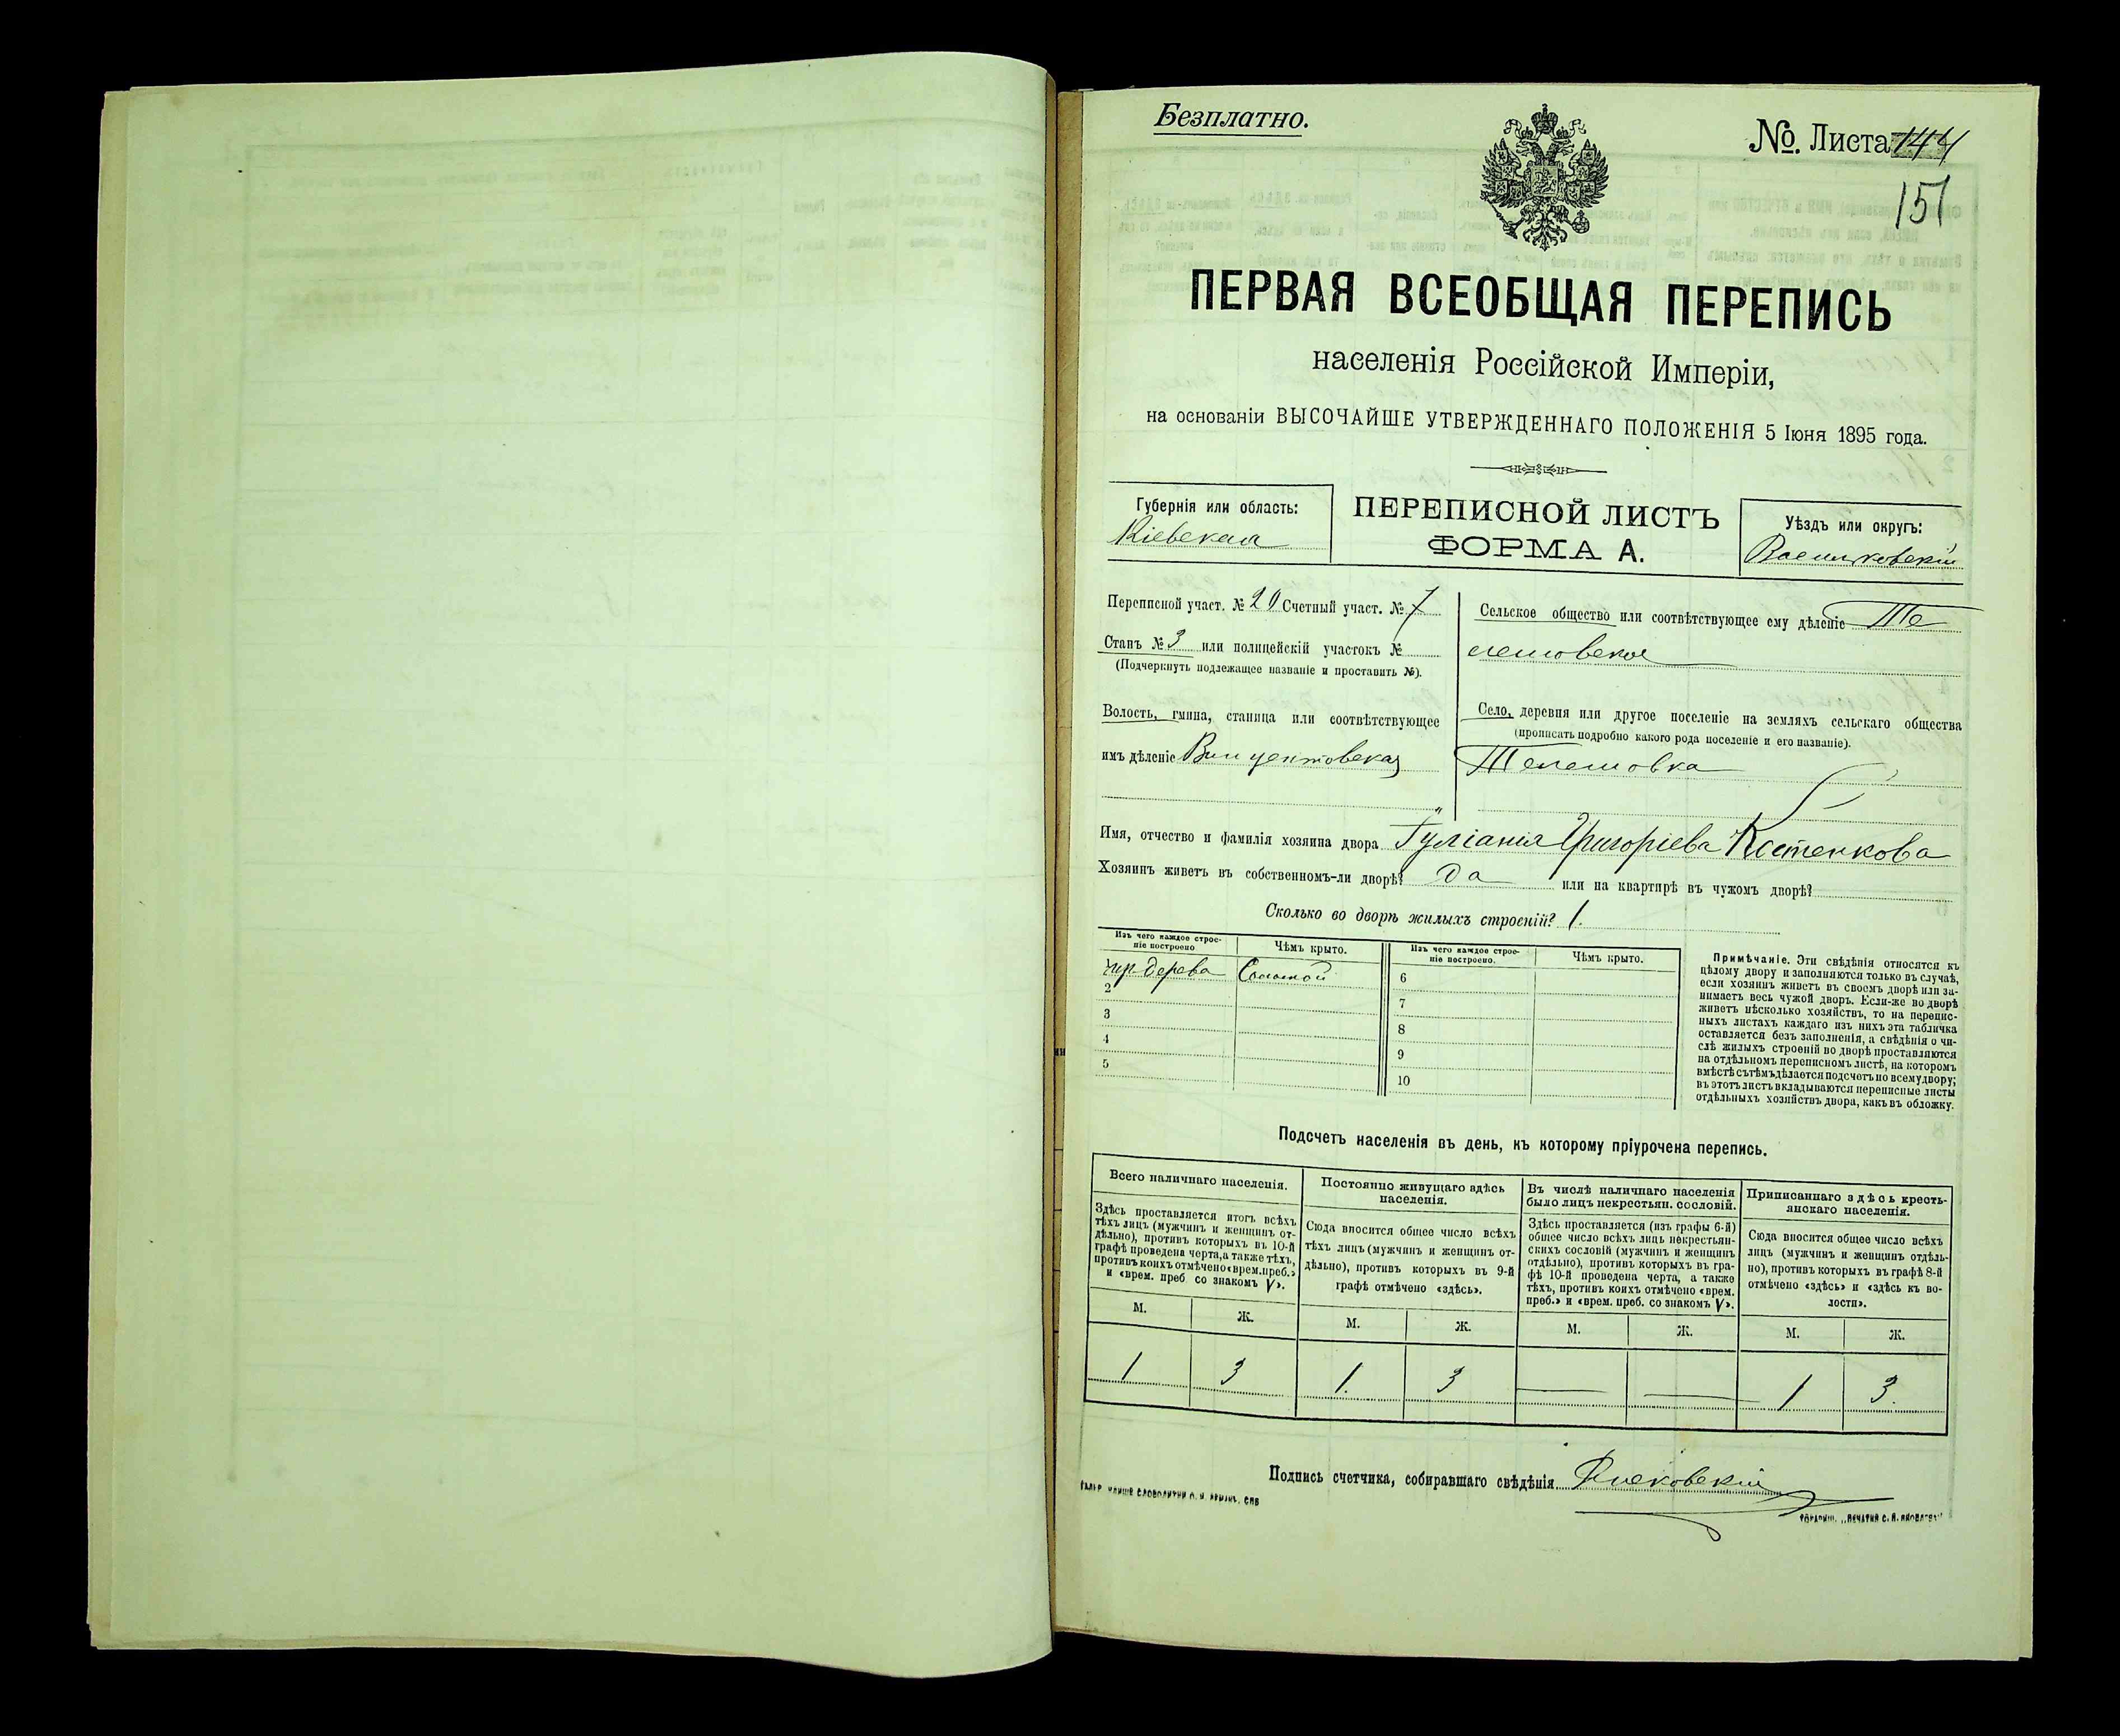 Безплатно.
№. Листа 144
151
ПЕРВАЯ ВСЕОБЩАЯ ПЕРЕПИСЬ
населенія Россійской Имперіи,
на основаніи ВЫСОЧАЙШЕ УТВЕРЖДЕННАГО ПОЛОЖЕНІЯ 5 Іюня 1895 года.
Губернія или область:
Кіевская
ПЕРЕПИСНОЙ ЛИСТЪ
ФОРМА А.
Уѣздъ или округъ:
Васильковскій
Переписной участ. № 20 Счетный участ. № 7
Станъ № 3 или полицейскій участокъ №
(Подчеркнуть подлежащее названіе и проставить №).
Волость, гмина, станица или соотвѣтствующее
имъ дѣленіе Винцентовская
Сельское общество или соотвѣтствующее ему дѣленіе Те
лешовское
Село, деревня или другое поселеніе на земляхъ сельскаго общества
(прописать подробно какого рода поселеніе и его названіе).
Телешовка
Имя, отчество и фамилія хозяина двора Григоріева Костенкова
Хозяинъ живетъ въ собственномъ-ли дворѣ? Да или на квартирѣ въ чужомъ дворѣ?
Сколько во дворѣ жилыхъ строеній? 1.
Изъ чего каждое строе-
ніе построено
Чѣмъ крыто.
Изъ чего каждое строе-
ніе построено.
Чѣмъ крыто.
дерева Соломой
2
3
4
5
6
7
8
9
10
Примѣчаніе. Эти свѣдѣнія относятся къ
цѣлому двору и заполняются только въ случаѣ,
если хозяинъ живетъ въ своемъ дворѣ или за-
нимаетъ весь чужой дворъ. Если-же во дворѣ
живетъ нѣсколько хозяйствъ, то на перепис-
ныхъ листахъ каждаго изъ нихъ эта табличка
оставляется безъ заполненія, а свѣдѣнія о чи-
слѣ жилыхъ строеній во дворѣ проставляются
на отдѣльномъ переписномъ листѣ, на которомъ
вмѣстѣ съ тѣмъ дѣлается подсчетъ по всему двору;
въ этотъ листъ вкладываются переписные листы
отдѣльныхъ хозяйствъ двора, какъ въ обложку.
Подсчетъ населенія въ день, къ которому пріурочена перепись.
Всего наличнаго населенія.
Здѣсь проставляется итогъ всѣхъ
тѣхъ лицъ (мужчинъ и женщинъ от-
дѣльно), противъ которыхъ въ 10-й
графѣ проведена черта, а также тѣхъ,
противъ коихъ отмѣчено «врем. преб.»
и «врем. преб. со знакомъ V».
Постоянно живущаго здѣсь
населенія.
Сюда вносится общее число всѣхъ
тѣхъ лицъ (мужчинъ и женщинъ от-
дѣльно), противъ которыхъ въ 9-й
графѣ отмѣчено «здѣсь».
Въ числѣ наличнаго населенія
было лицъ некрестьян. сословій.
Здѣсь проставляется (изъ графы 6-й)
общее число всѣхъ лицъ некрестьян-
скихъ сословій (мужчинъ и женщинъ
отдѣльно), противъ которыхъ въ гра-
фѣ 10-й проведена черта, а также
тѣхъ, противъ коихъ отмѣчено «врем.
преб.» и «врем. преб. со знакомъ V».
Приписаннаго здѣсь кресть-
янскаго населенія.
Сюда вносится общее число всѣхъ
лицъ (мужчинъ и женщинъ отдѣль-
но), противъ которыхъ въ графѣ 8-й
отмѣчено «здѣсь» и «здѣсь къ во-
лости».
М. Ж. М. Ж. М. Ж. М. Ж.
1 3 1. 3 — — 1 3.
Подпись счетчика, собиравшаго свѣдѣнія